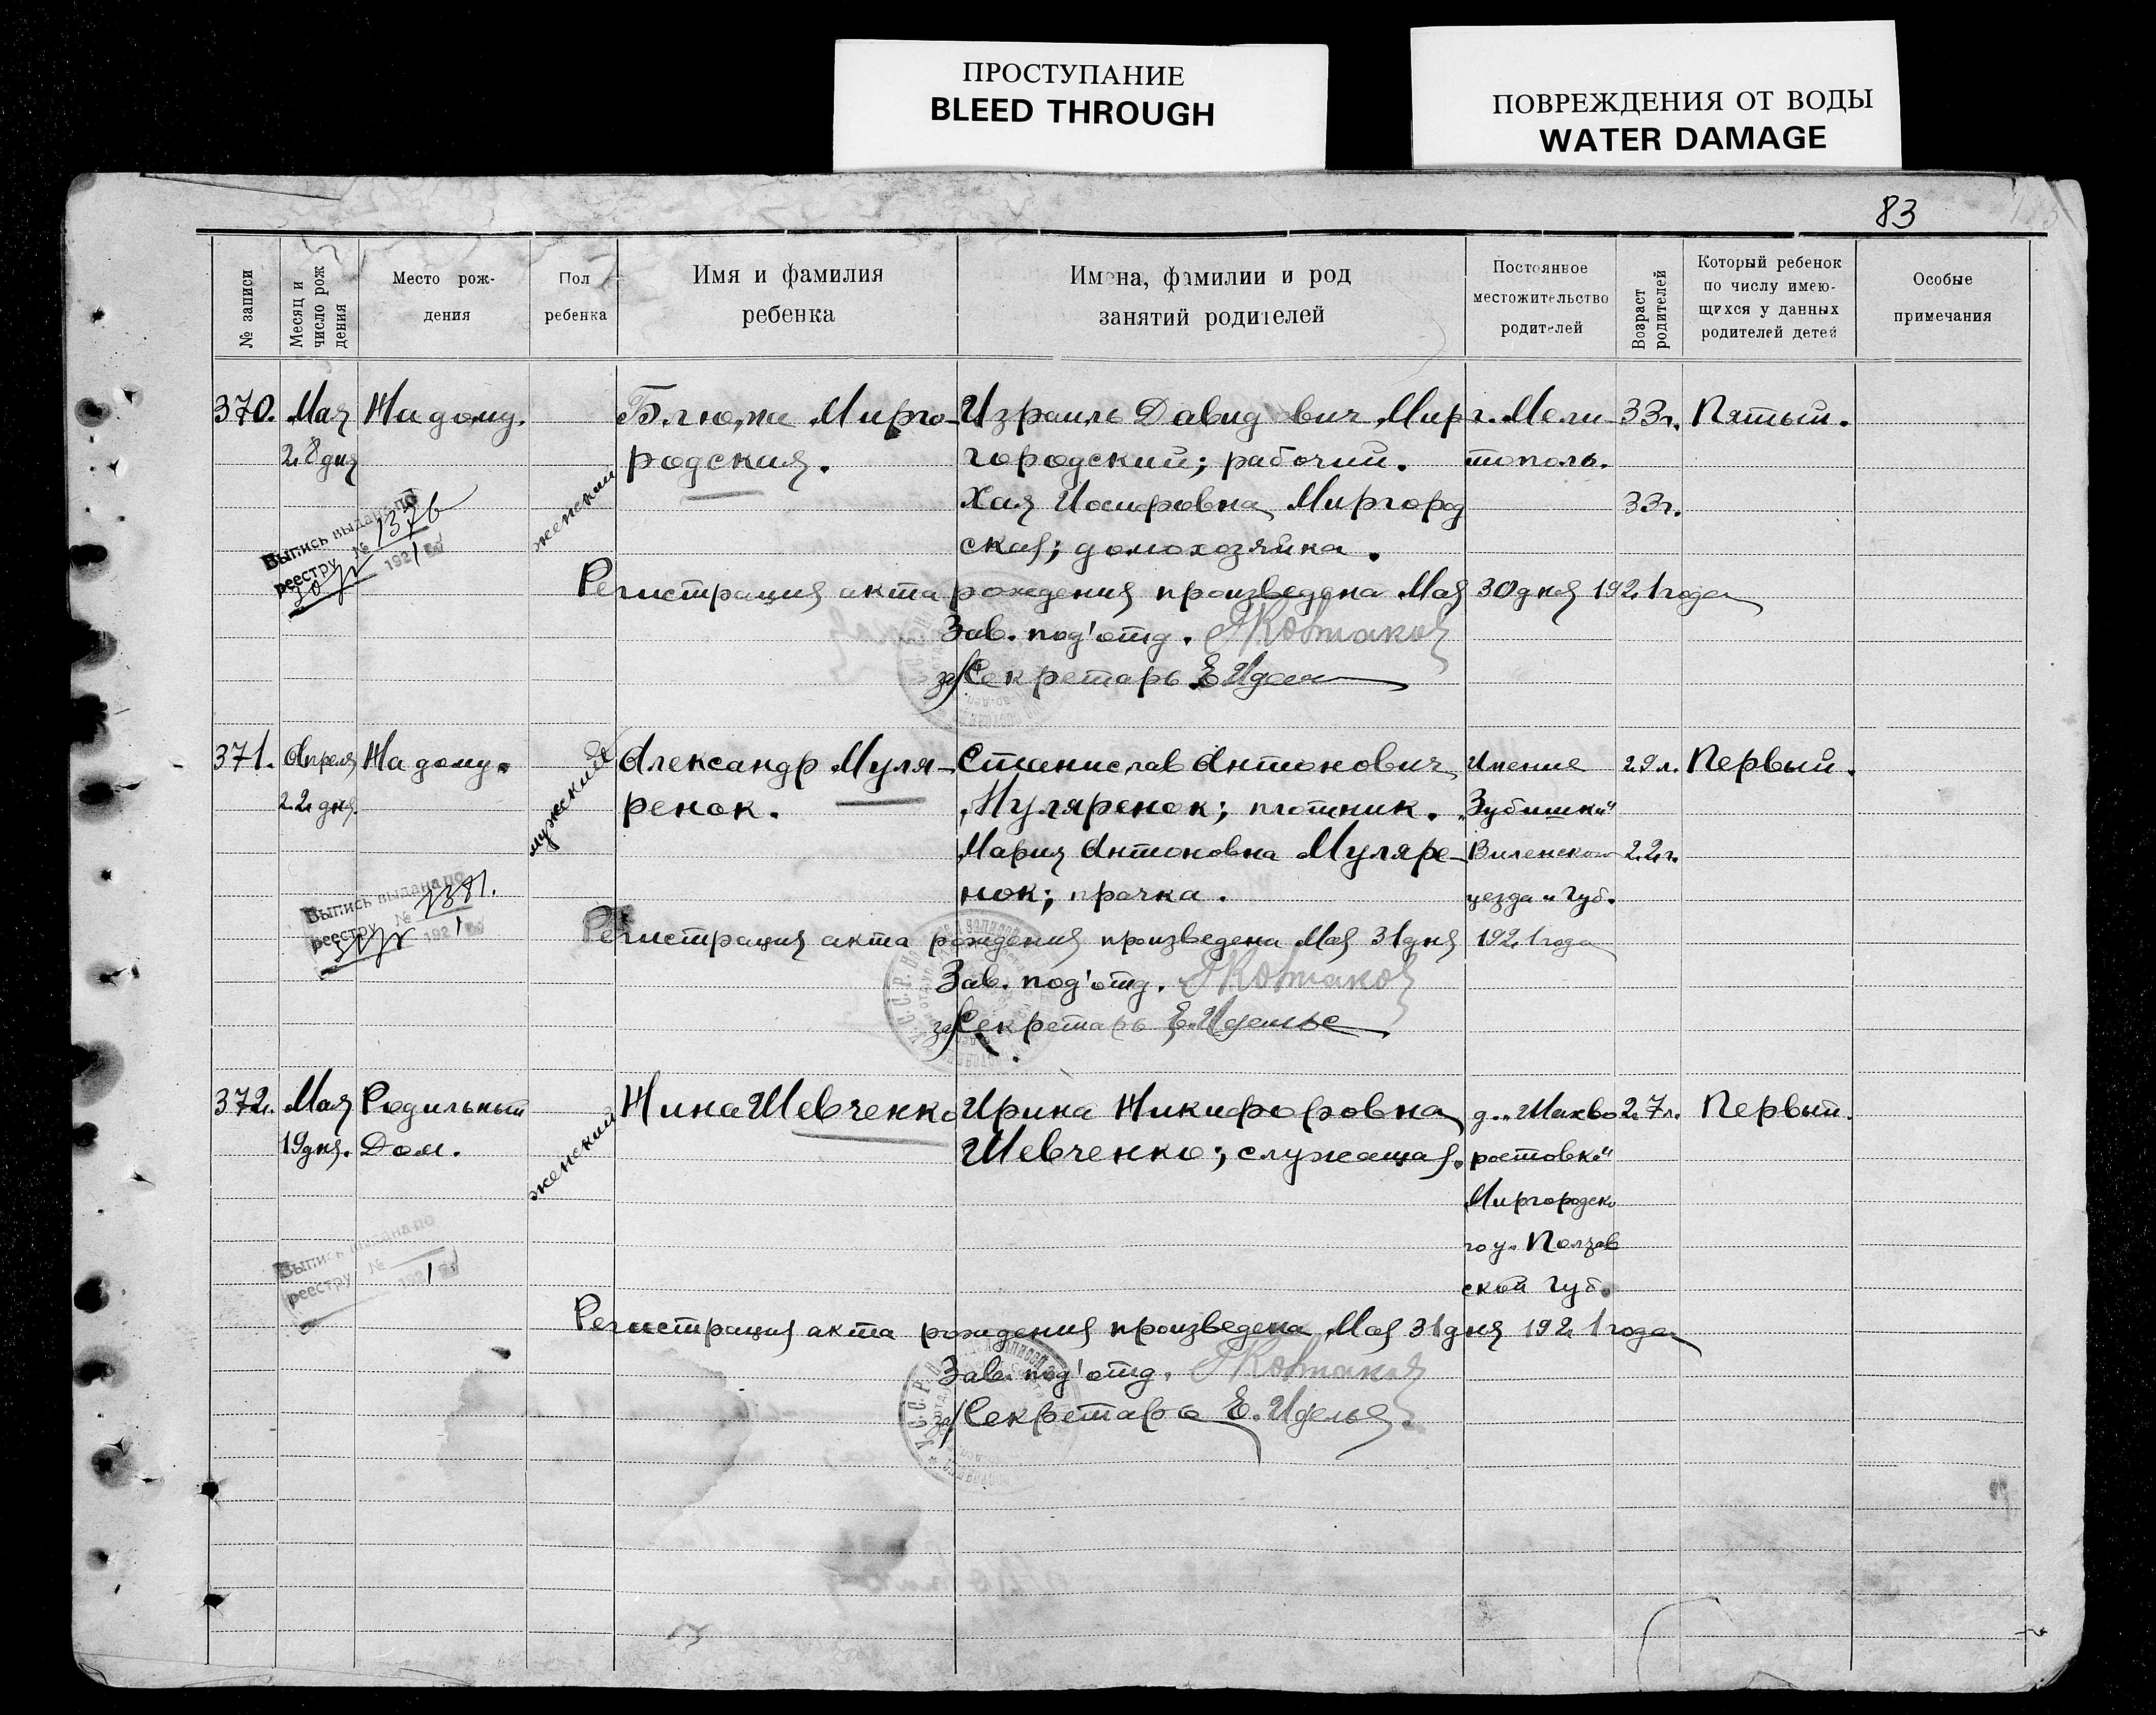 ПРОСТУПАНИЕ
BLEED THROUGH
ПОВРЕЖДЕНИЯ ОТ ВОДЫ
WATER DAMAGE
83
№ записи
Месяц и число рождения
Место рож-
дения
Пол
ребенка
Имя и фамилия
ребенка
Имена, фамилии и род
занятий родителей
Постоянное
местожительство
родителей
Возраст родителей
Который ребенок
по числу имею-
щихся у данных
родителей детей
Особые
примечания
370. Мая На дому. Блюма Мирго- Израиль Давидович Мир г. Мели- 33г. Пятый.
28 дня родская. городский; рабочий. тополь.
женский
Хая Иосифовна Миргород 33г.
ская; домохозяйка.
Выпись выдана по
реестру № 1376
30/V 1921
Регистрация акта рождения произведена Мая 30 дня 1921 года
Зав. под'отд.
за/Секретарь
371. Апреля На дому. Александр Муля- Станислав Антонович Имение 29л. Первый.
22 дня. ренок. Муляренок; плотник. „Зубишки"
мужской
Мария Антоновна Муляре- Виленского 22г.
нок; прачка. уезда и Губ.
Выпись выдана по
реестру № 1381.
31/V 1921
Регистрация акта рождения произведена Мая 31 дня 1921 года
Зав. под'отд.
за/Секретарь
372. Мая Родильный Нина Шевченко Ирина Никифоровна д. „Шахво 27л. Первый.
19 дня. Дом. Шевченко; служащая. ростовка"
женский
Миргородско
го у. Полтав
ской Губ.
Выпись выдана по
реестру № 1921
Регистрация акта рождения произведена Мая 31 дня 1921 года
Зав. под'отд.
за/Секретарь